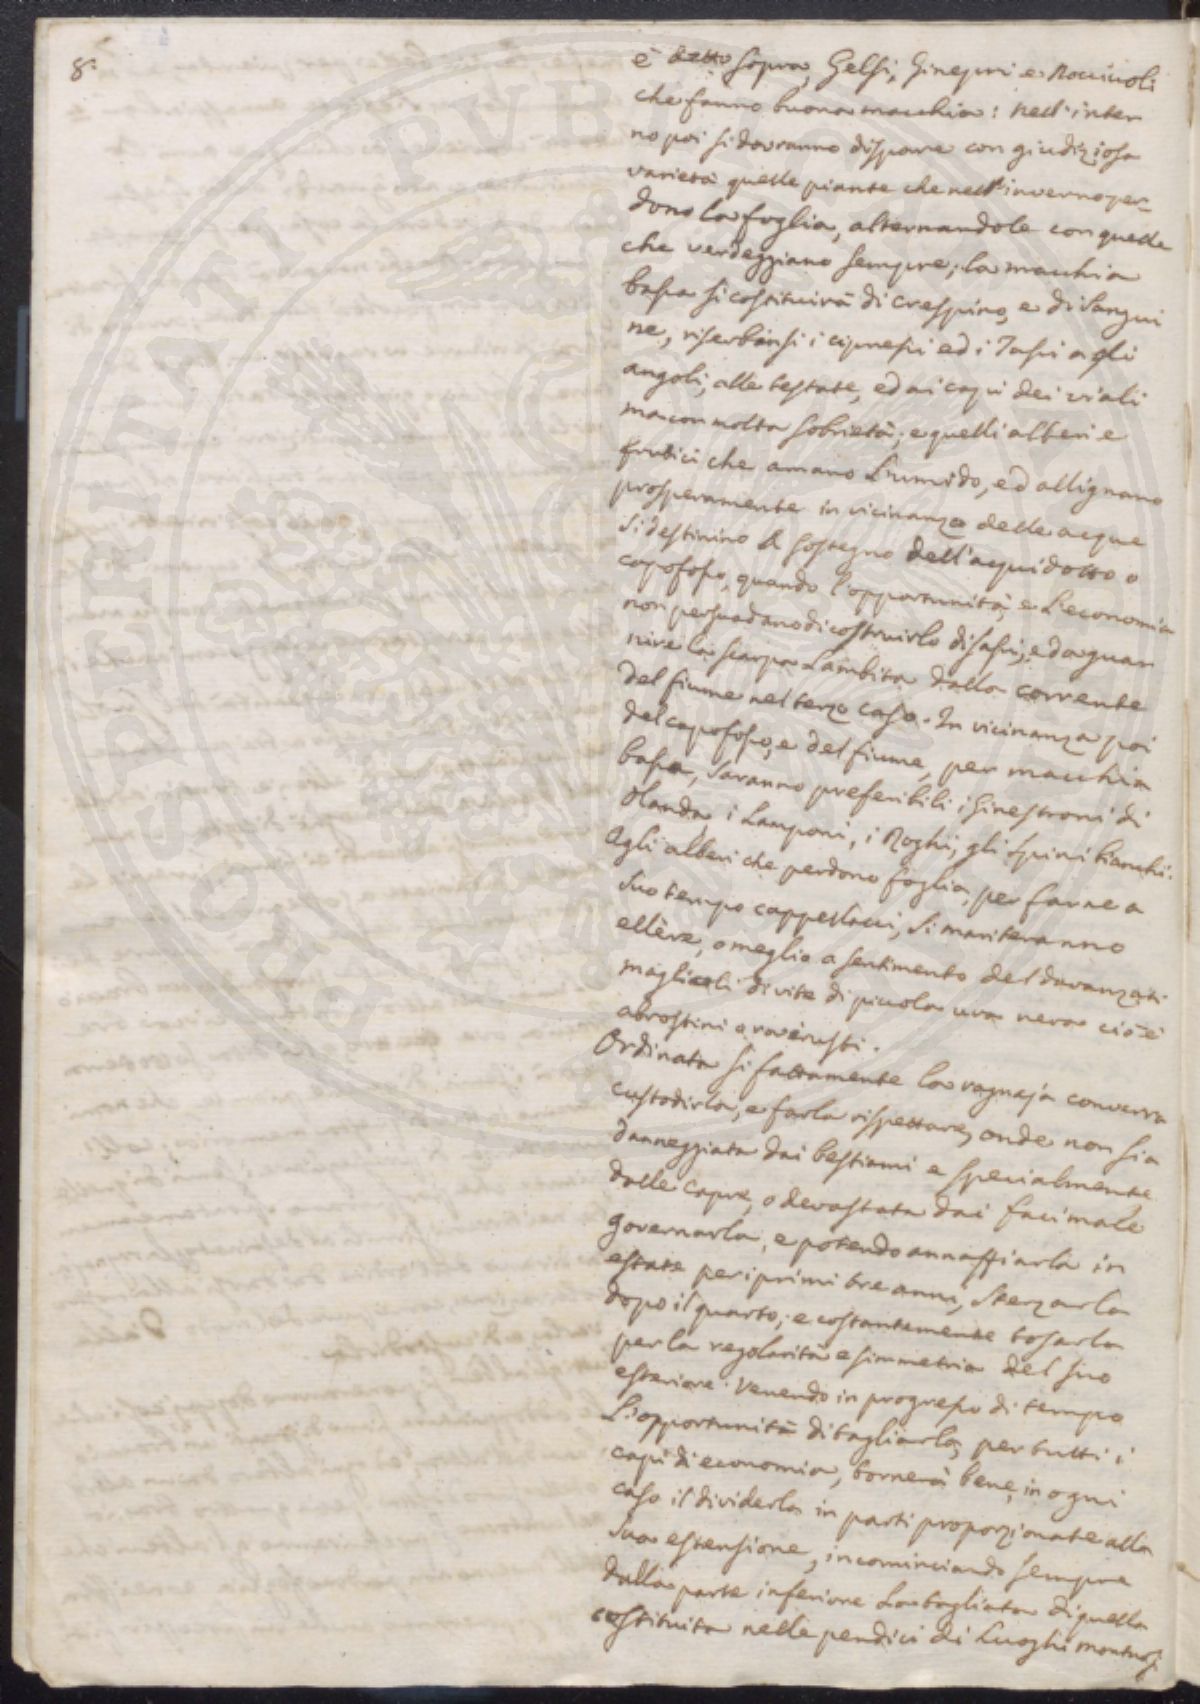 8.
è detto sopra, Gelsi, Ginepri e Nocciuoli
che fanno buona macchia: nell'inter
no poi si dovranno disporre con giudiziosa
varietà quelle piante che nell'inverno per-
dono la foglia, alternandole con quelle
che verdeggiano sempre; la macchia
bassa si costituirà di crespino, e di sangui
ne, riserbansi i cipressi ed i Tassi agli
angoli, alle testate, ed ai capi dei viali
ma con molta sobrietà; e quelli alberi e
frutici che amano l'umido, ed allignano
prosperamente in vicinanza delle acque
si destinino a sostegno dell'aquidotto o
capofosso, quando l'opportunità, e l'economia
non persuadano di costruirlo di sassi; e da guar
nire la scarpa lambita dalla corrente
del fiume nel terzo caso. In vicinanza poi
del capofosso, e del fiume, per macchia
bassa, saranno preferibili i Ginestroni di
Olanda, i Lamponi, i Roghi, gli spini bianchi.
Agli alberi che perdono foglia, per farne a
suo tempo cappellacci, si mariteranno
ellere, o meglio a sentimento del Davanzati
magliuoli di vite di piccola uva nera cioè
abrostini e raverusti.
Ordinata si fattamente la ragnaja converrà
custodirla, e farla rispettare, onde non sia
danneggiata dai bestiami e specialmente
dalle capre, o devastata dai facimale
governarla, e potendo annaffiarla in
estate per i primi tre anni, sterzarla
dopo il quarto; e costantemente tosarla
per la regolarità e simmetria del suo
esteriore. Venendo in progresso di tempo
l'opportunità di tagliarla, per tutti i
capi di economia, tornerà bene, in ogni
caso il dividerla in parti proporzionate alla
sua estensione, incominciando sempre
dalla parte inferiore la tagliata di quella
costituita nelle pendici di Luoghi montuosi
PROSPERITATI PUBLICAE